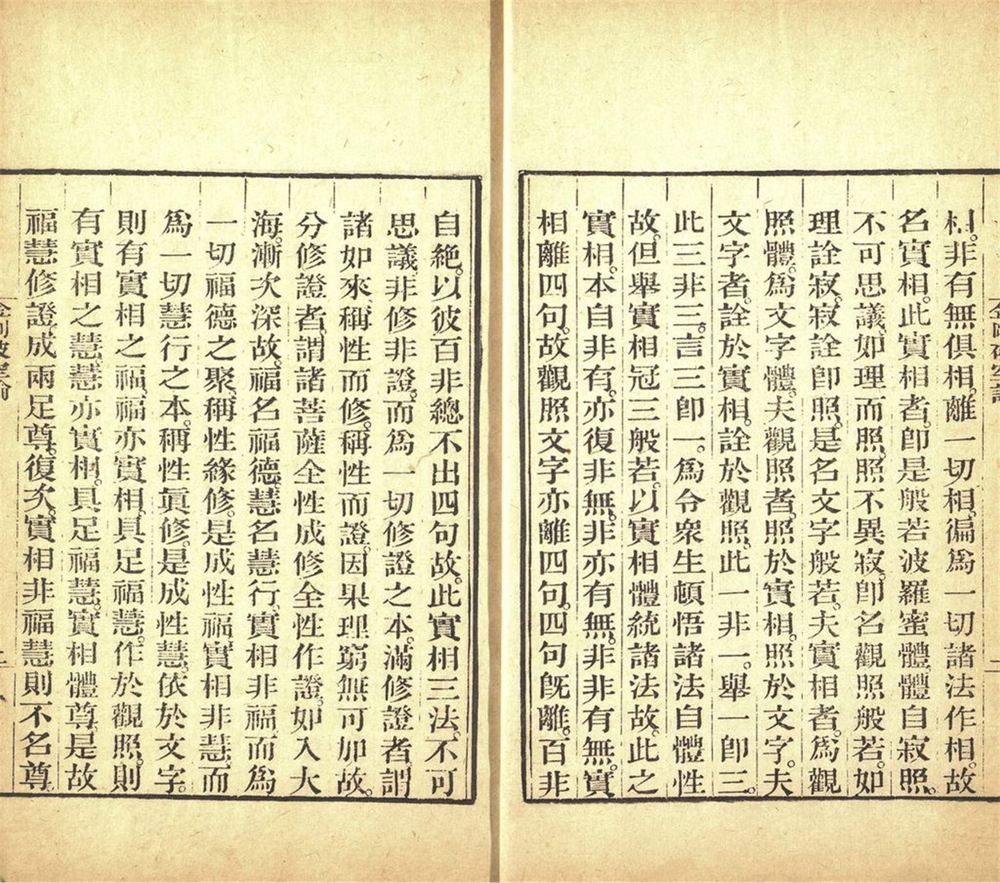 相。非有無俱相。離一切相。徧爲一切諸法作相。故
名實相。此實相者。卽是般若波羅蜜體。體自寂照。
不可思議。如理而照。照不異寂。卽名觀照般若。如
理詮寂。寂詮卽照。是名文字般若。夫實相者。爲觀
照體。爲文字體。夫觀照者。照於實相。照於文字。夫
文字者。詮於實相。詮於觀照。此一非一。舉一卽三。
此三非三。言三卽一。爲令衆生頓悟諸法自體性
故。但舉實相冠三般若。以實相體統諸法故。此之
實相。本自非有。亦復非無。非亦有無。非非有無。實
相離四句。故觀照文字亦離四句。四句旣離。百非
自絶。以彼百非總不出四句故。此實相三法。不可
思議。非修非證。而爲一切修證之本。滿修證者。謂
諸如來。稱性而修。稱性而證。因果理窮無可加故。
分修證者。謂諸菩薩全性成修全性作證。如入大
海。漸次深故。福名福德。慧名慧行。實相非福而爲
一切福德之聚。稱性緣修。是成性福。實相非慧。而
爲一切慧行之本。稱性眞修。是成性慧。依於文字。
則有實相之福。福亦實相。具足福慧。作於觀照。則
有實相之慧。慧亦實相。具足福慧。實相體尊。是故
福慧修證。成兩足尊。復次。實相非福慧則不名尊。